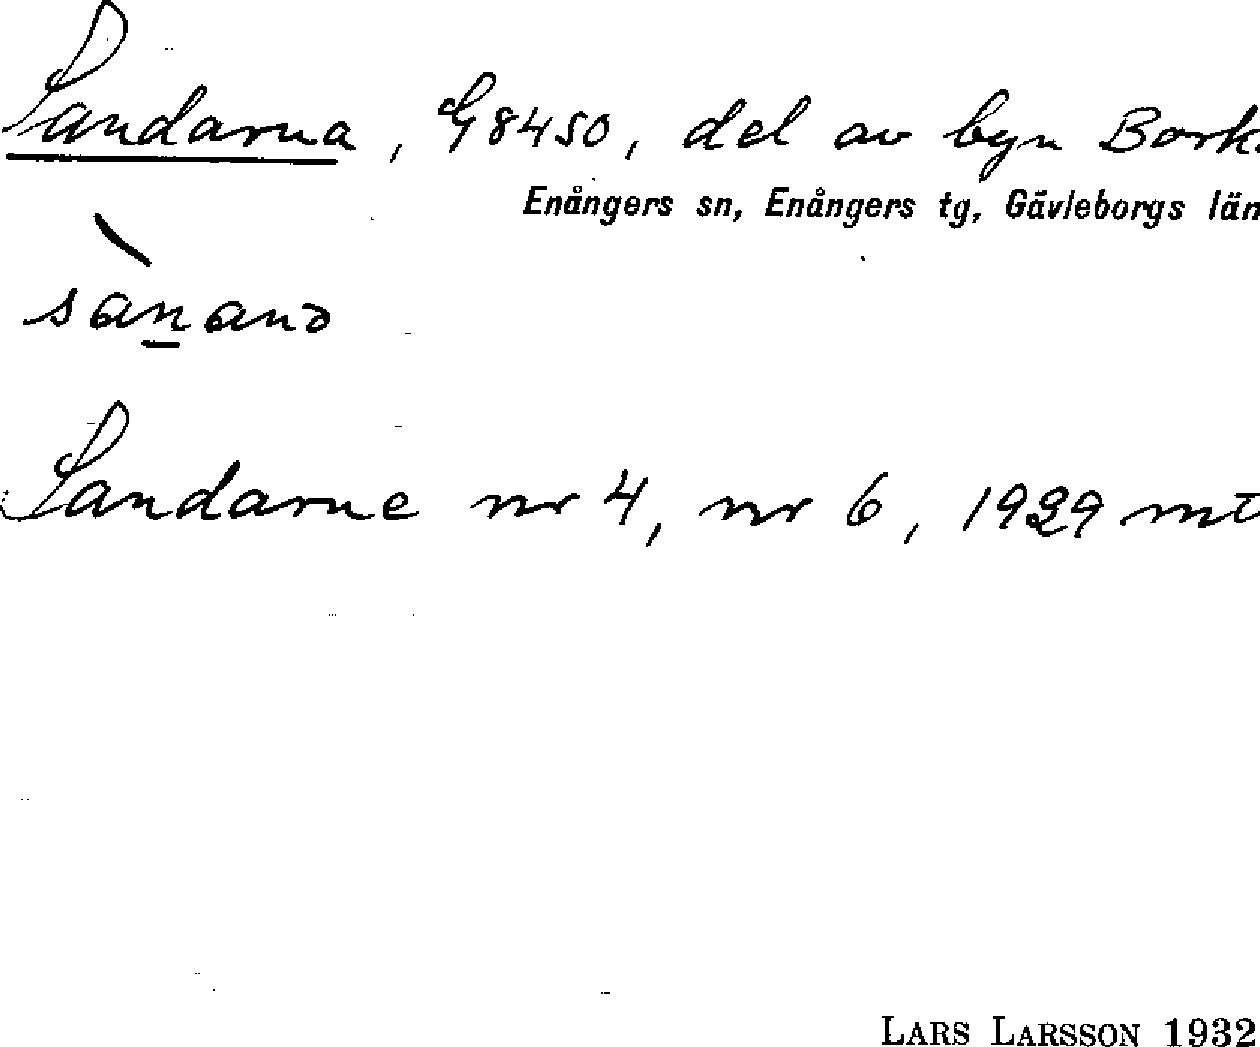 Sandarna, G8450, del av byn Bork
Enångers sn, Enångers tg, Gävleborgs län
sànanɔ
Sandarne nr 4, nr 6, 1929 mt
LARS LARSSON 1932